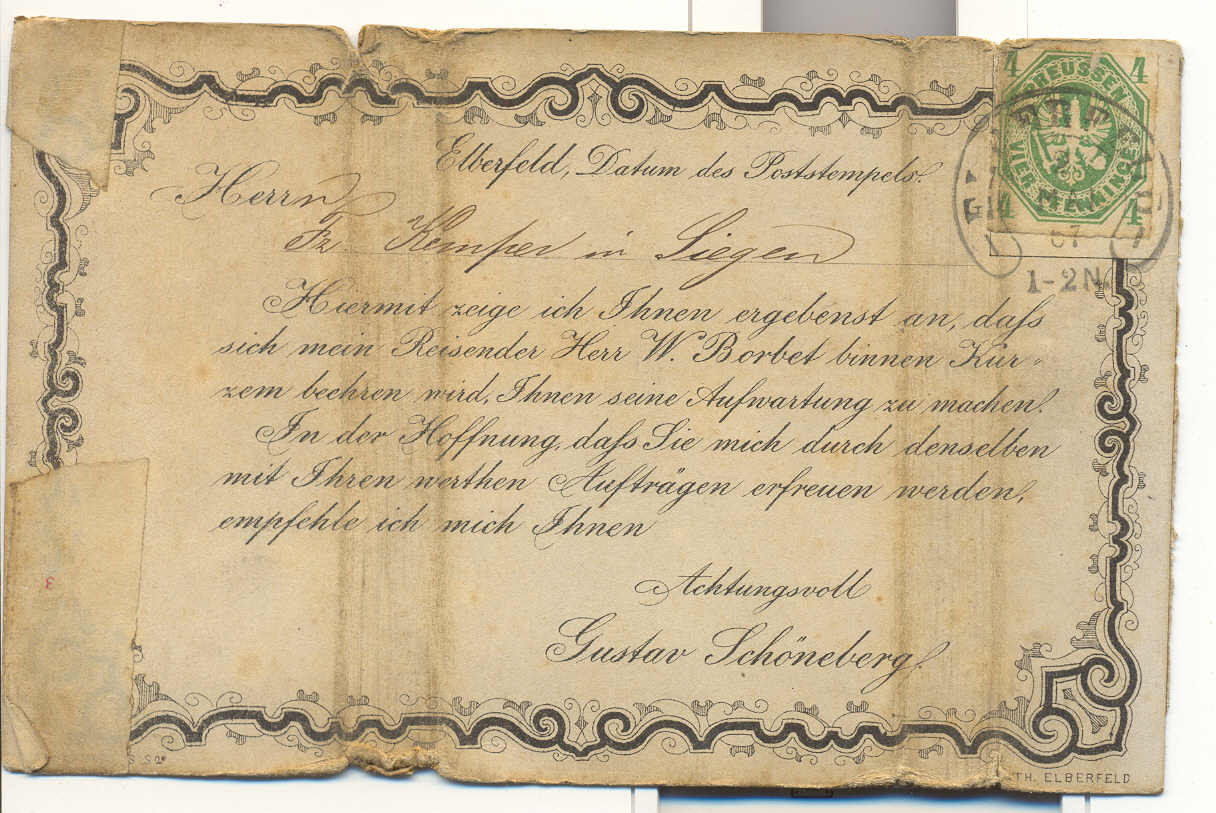 4 PREUSSEN 4
VIER PFENNINGE
4 4
ELBERFELD
67
1-2N.
Elberfeld, Datum des Poststempels.
Herrn
Fz Kemper in Siegen
Hiermit zeige ich Ihnen ergebenst an, daſs
sich mein Reisender Herr W. Borbet binnen Kür-
zem beehren wird, Ihnen seine Aufwartung zu machen.
In der Hoffnung, daſs Sie mich durch denselben
mit Ihren werthen Aufträgen erfreuen werden,
empfehle ich mich Ihnen
Achtungsvoll
Gustav Schöneberg.
TH. ELBERFELD